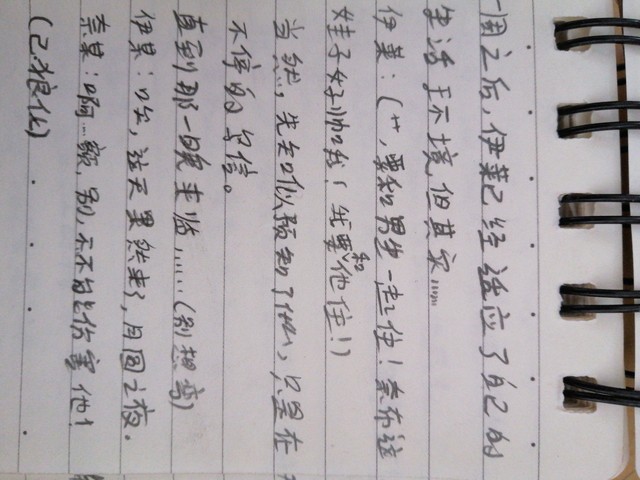 一周之后,伊莱已经适应了自己的
生活环境但其实……
伊莱:(艹,要和男生一起住!奈布这
娃子好帅哦!我要和他住!)
当然,先知似预知了什么,只是在
不停的写信。
直到那一晚来临,……(别想弯)
伊莱:哈,这天果然来了,月圆之夜。
奈某:啊…额,别,不不能伤害他!
(已狼化)